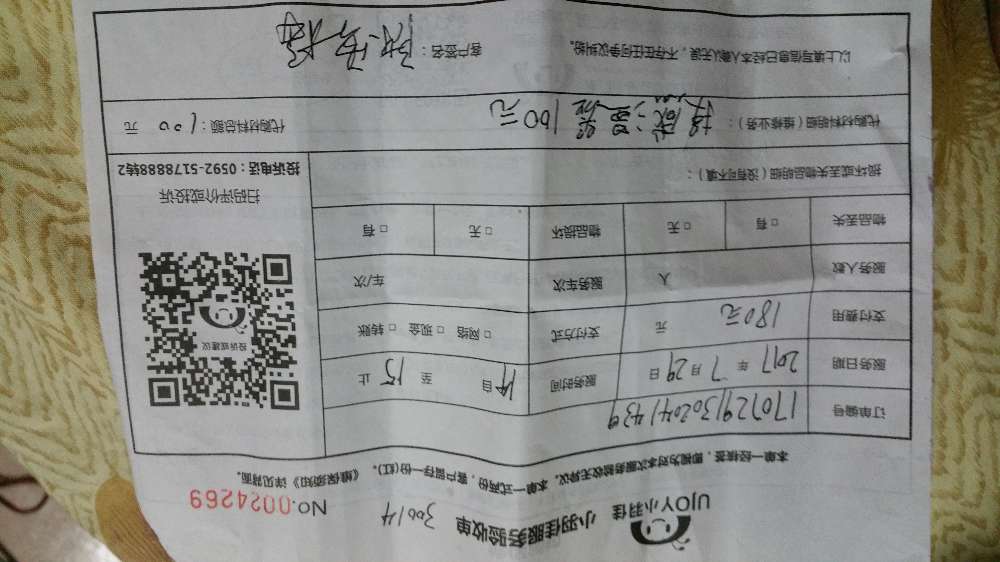 UJOY小羽佳
小羽佳服务验收单 30014
NO.0024269
本单一经核签，即视为对本次服务验收无异议。本单一式两份，客户留存一份(红)。《维保须知》详见背面。
订单编号 1707291302041439
服务日期 2017 年 7 月 29 日 服务时间 14 自 至 15 止
支付费用 180元 元 支付方式 □ 网络 □ 现金 □ 转账
服务人数 人 服务车次 车/次
物品丢失 □ 有 □ 无 物品损坏 □ 无 □ 有
损坏或丢失物品明细（没有可不填）：
投诉或建议
扫码评价或投诉
投诉电话：0592-5178888转2
代购材料明细（维修业务）： 100元 代购材料总额：100 元
以上填写信息已经本人确认无误，不存在任何争议纠纷。 客户签名：